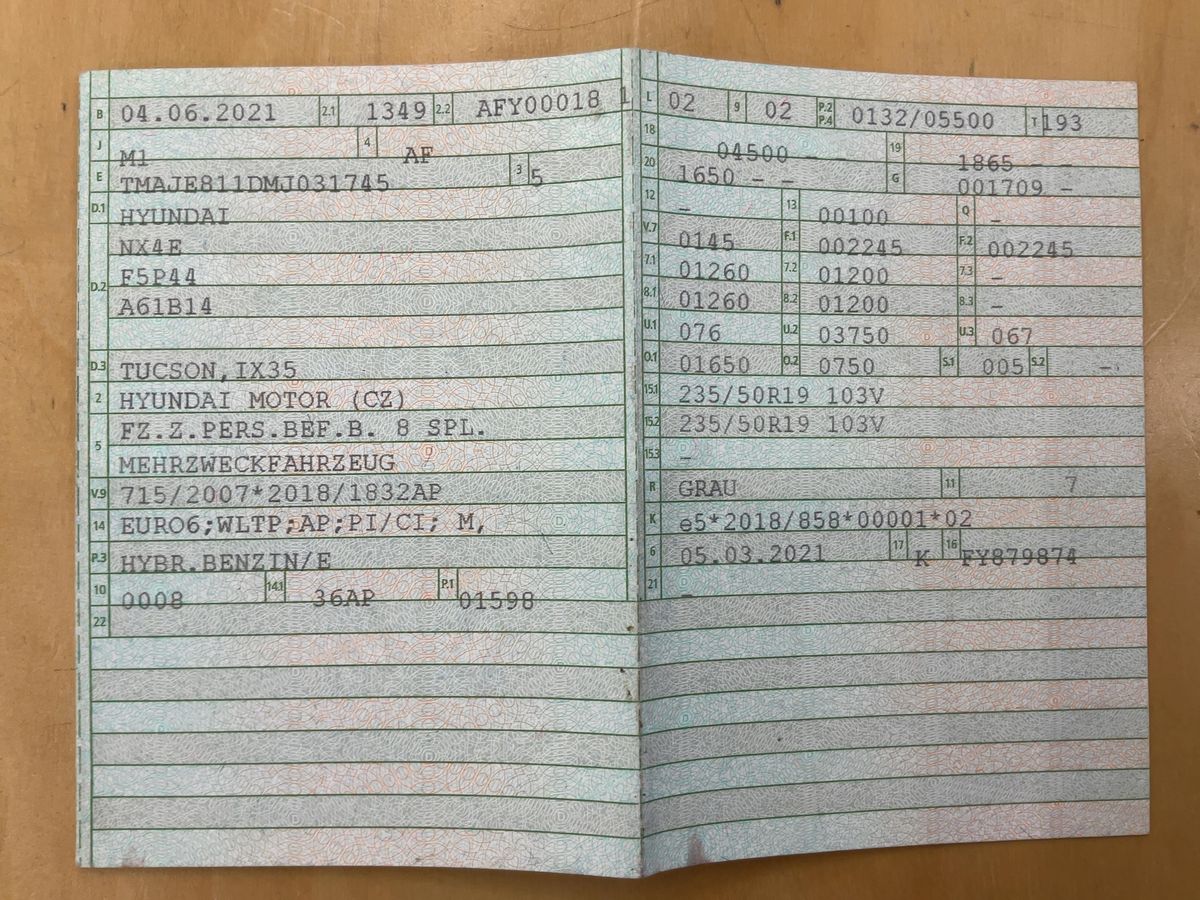 B 04.06.2021 2.1 1349 2.2 AFY00018 1
J M1 4 AF
E TMAJE811DMJ031745 3 5
D.1 HYUNDAI
NX4E
D.2 F5P44
A61B14
D.3 TUCSON,IX35
2 HYUNDAI MOTOR (CZ)
FZ.Z.PERS.BEF.B. 8 SPL.
5 MEHRZWECKFAHRZEUG
V.9 715/2007*2018/1832AP
14 EURO6;WLTP;AP;PI/CI; M,
P.3 HYBR.BENZIN/E
10 0008 14.1 36AP P.1 01598
22
L 02 9 02 P.2 P.4 0132/05500 T 193
18 04500 – – 19 1865 – –
20 1650 – – G 001709 –
12 – 13 00100 Q –
V.7 0145 F.1 002245 F.2 002245
7.1 01260 7.2 01200 7.3 –
8.1 01260 8.2 01200 8.3 –
U.1 076 U.2 03750 U.3 067
O.1 01650 O.2 0750 S.1 005 S.2 –
15.1 235/50R19 103V
15.2 235/50R19 103V
15.3 –
R GRAU 11 7
K e5*2018/858*00001*02
6 05.03.2021 17 K 16 FY879874
21 –